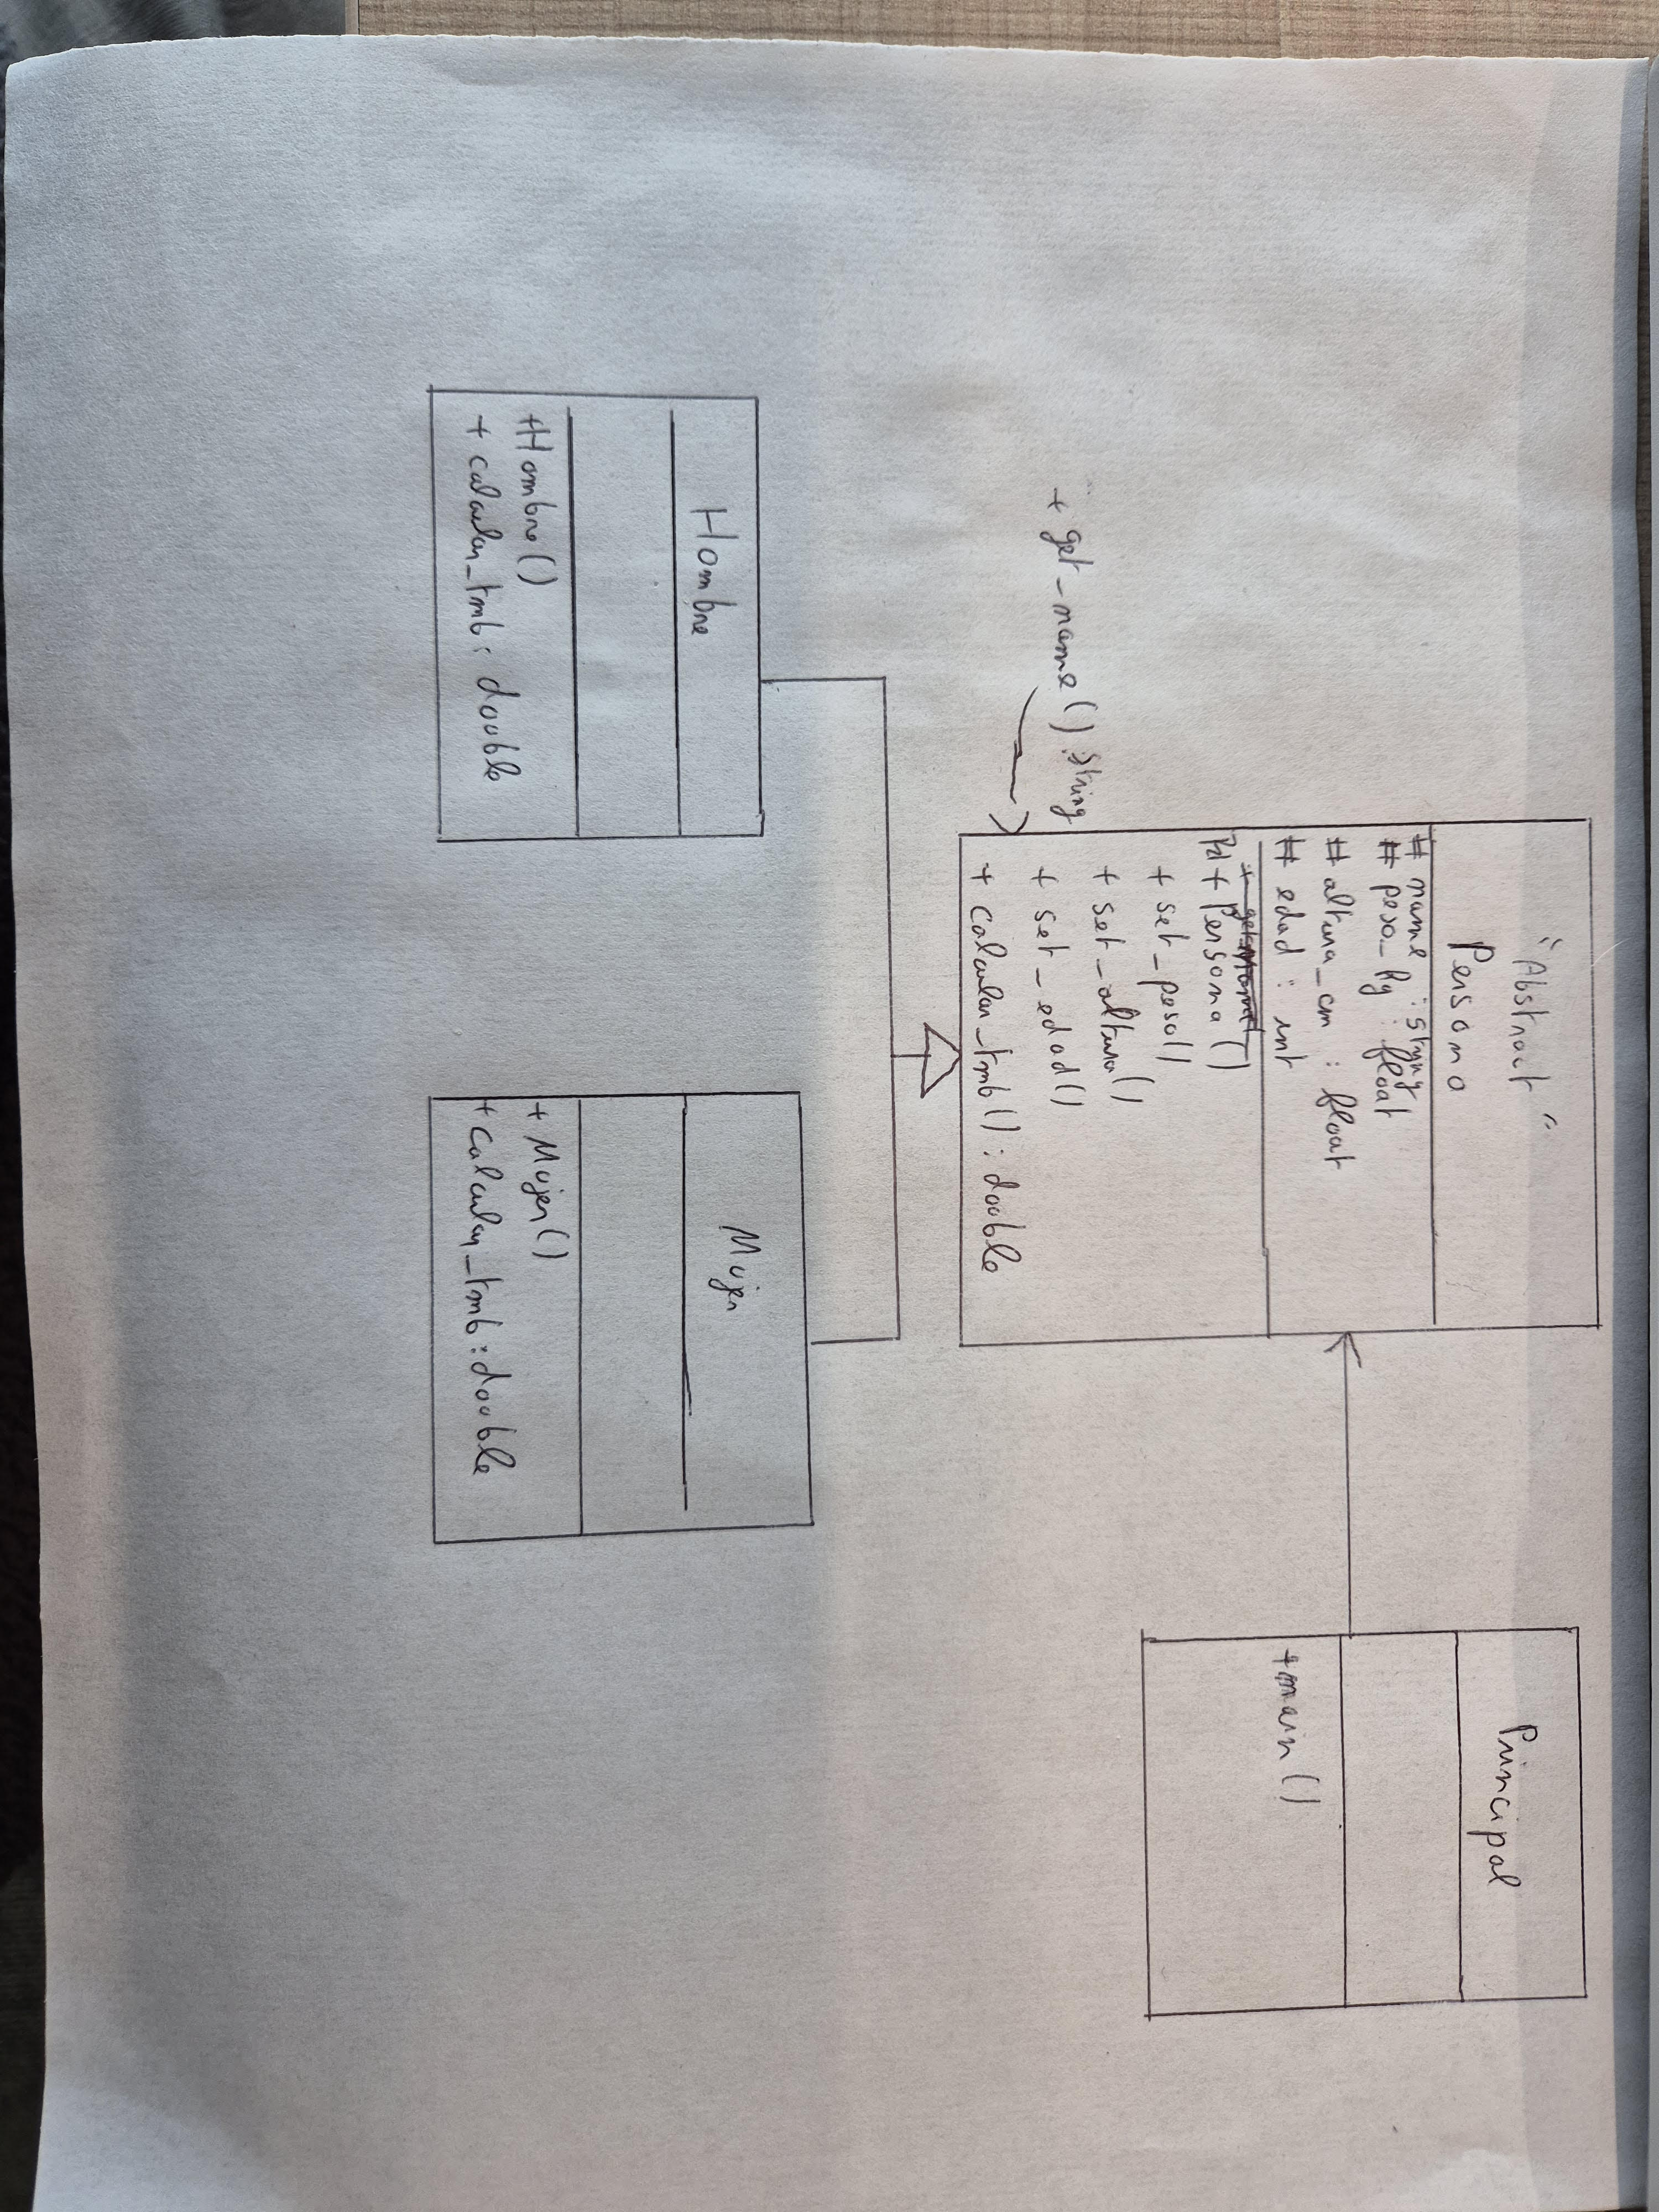 "Abstract"
Persona
# name : string
# peso_kg : float
# altura_cm : float
# edad : int
+ Persona()
+ set_peso()
+ set_altura()
+ set_edad()
+ calcular_tmb() : double
+ get_name() : string
Principal
+main()
Hombre
+Hombre()
+ calcular_tmb : double
Mujer
+ Mujer()
+ calcular_tmb : double